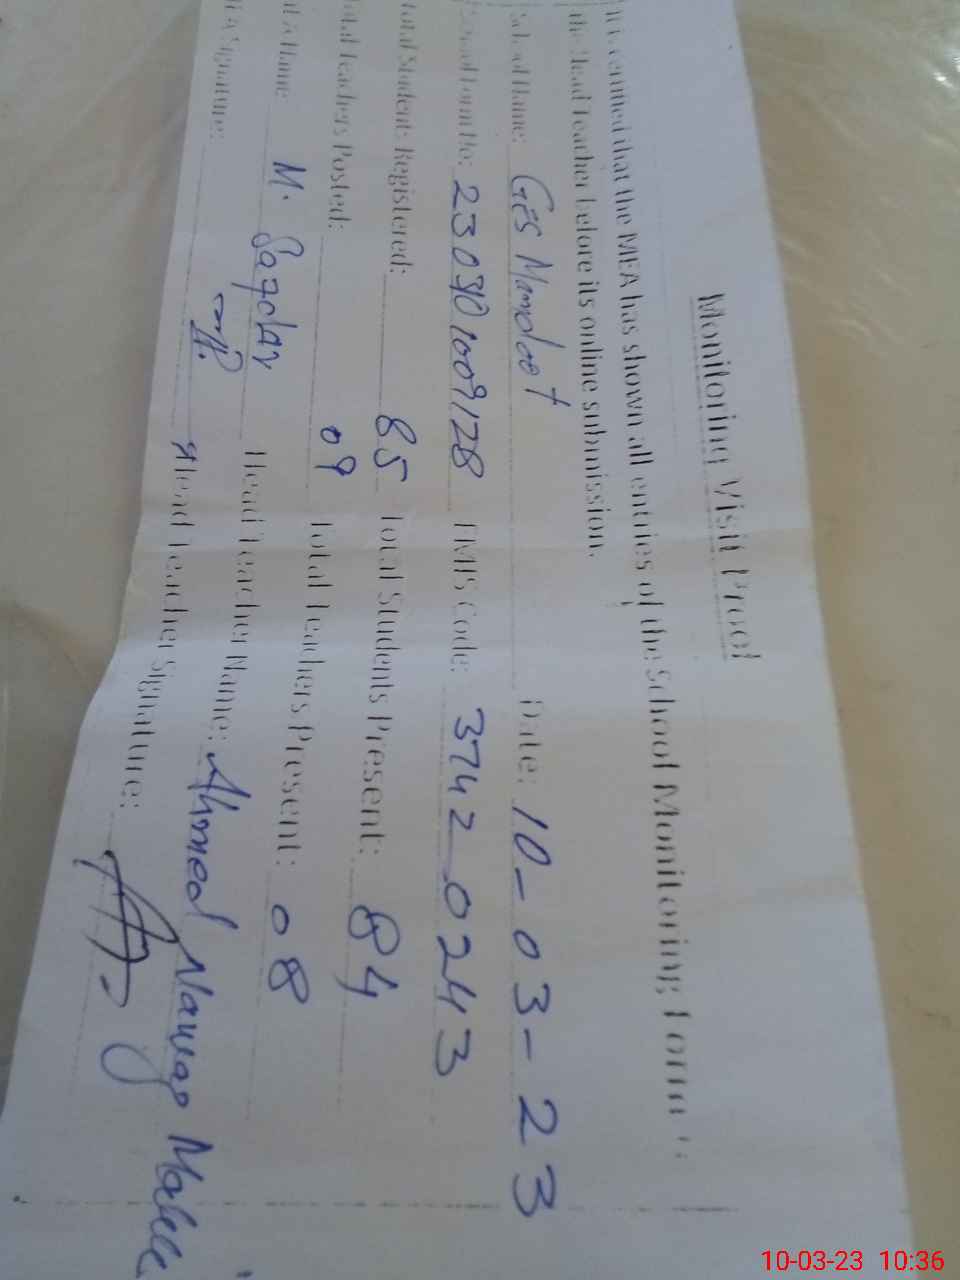 Monitoring Visit Proof
It is certified that the MEA has shown all entries of the School Monitoring Form
the Head Teacher before its online submission.
School Name: GES Mamdoot Date: 10-03-23
School Form No: EMIS Code: 37420243
Total Students Registered: 85 Total Students Present: 84
Total Teachers Posted: 09 Total Teachers Present: 08
MEA Name: M. Head Teacher Name: Ahmed Nawaz
MEA Signature: Head Teacher Signature:
10-03-23 10:36